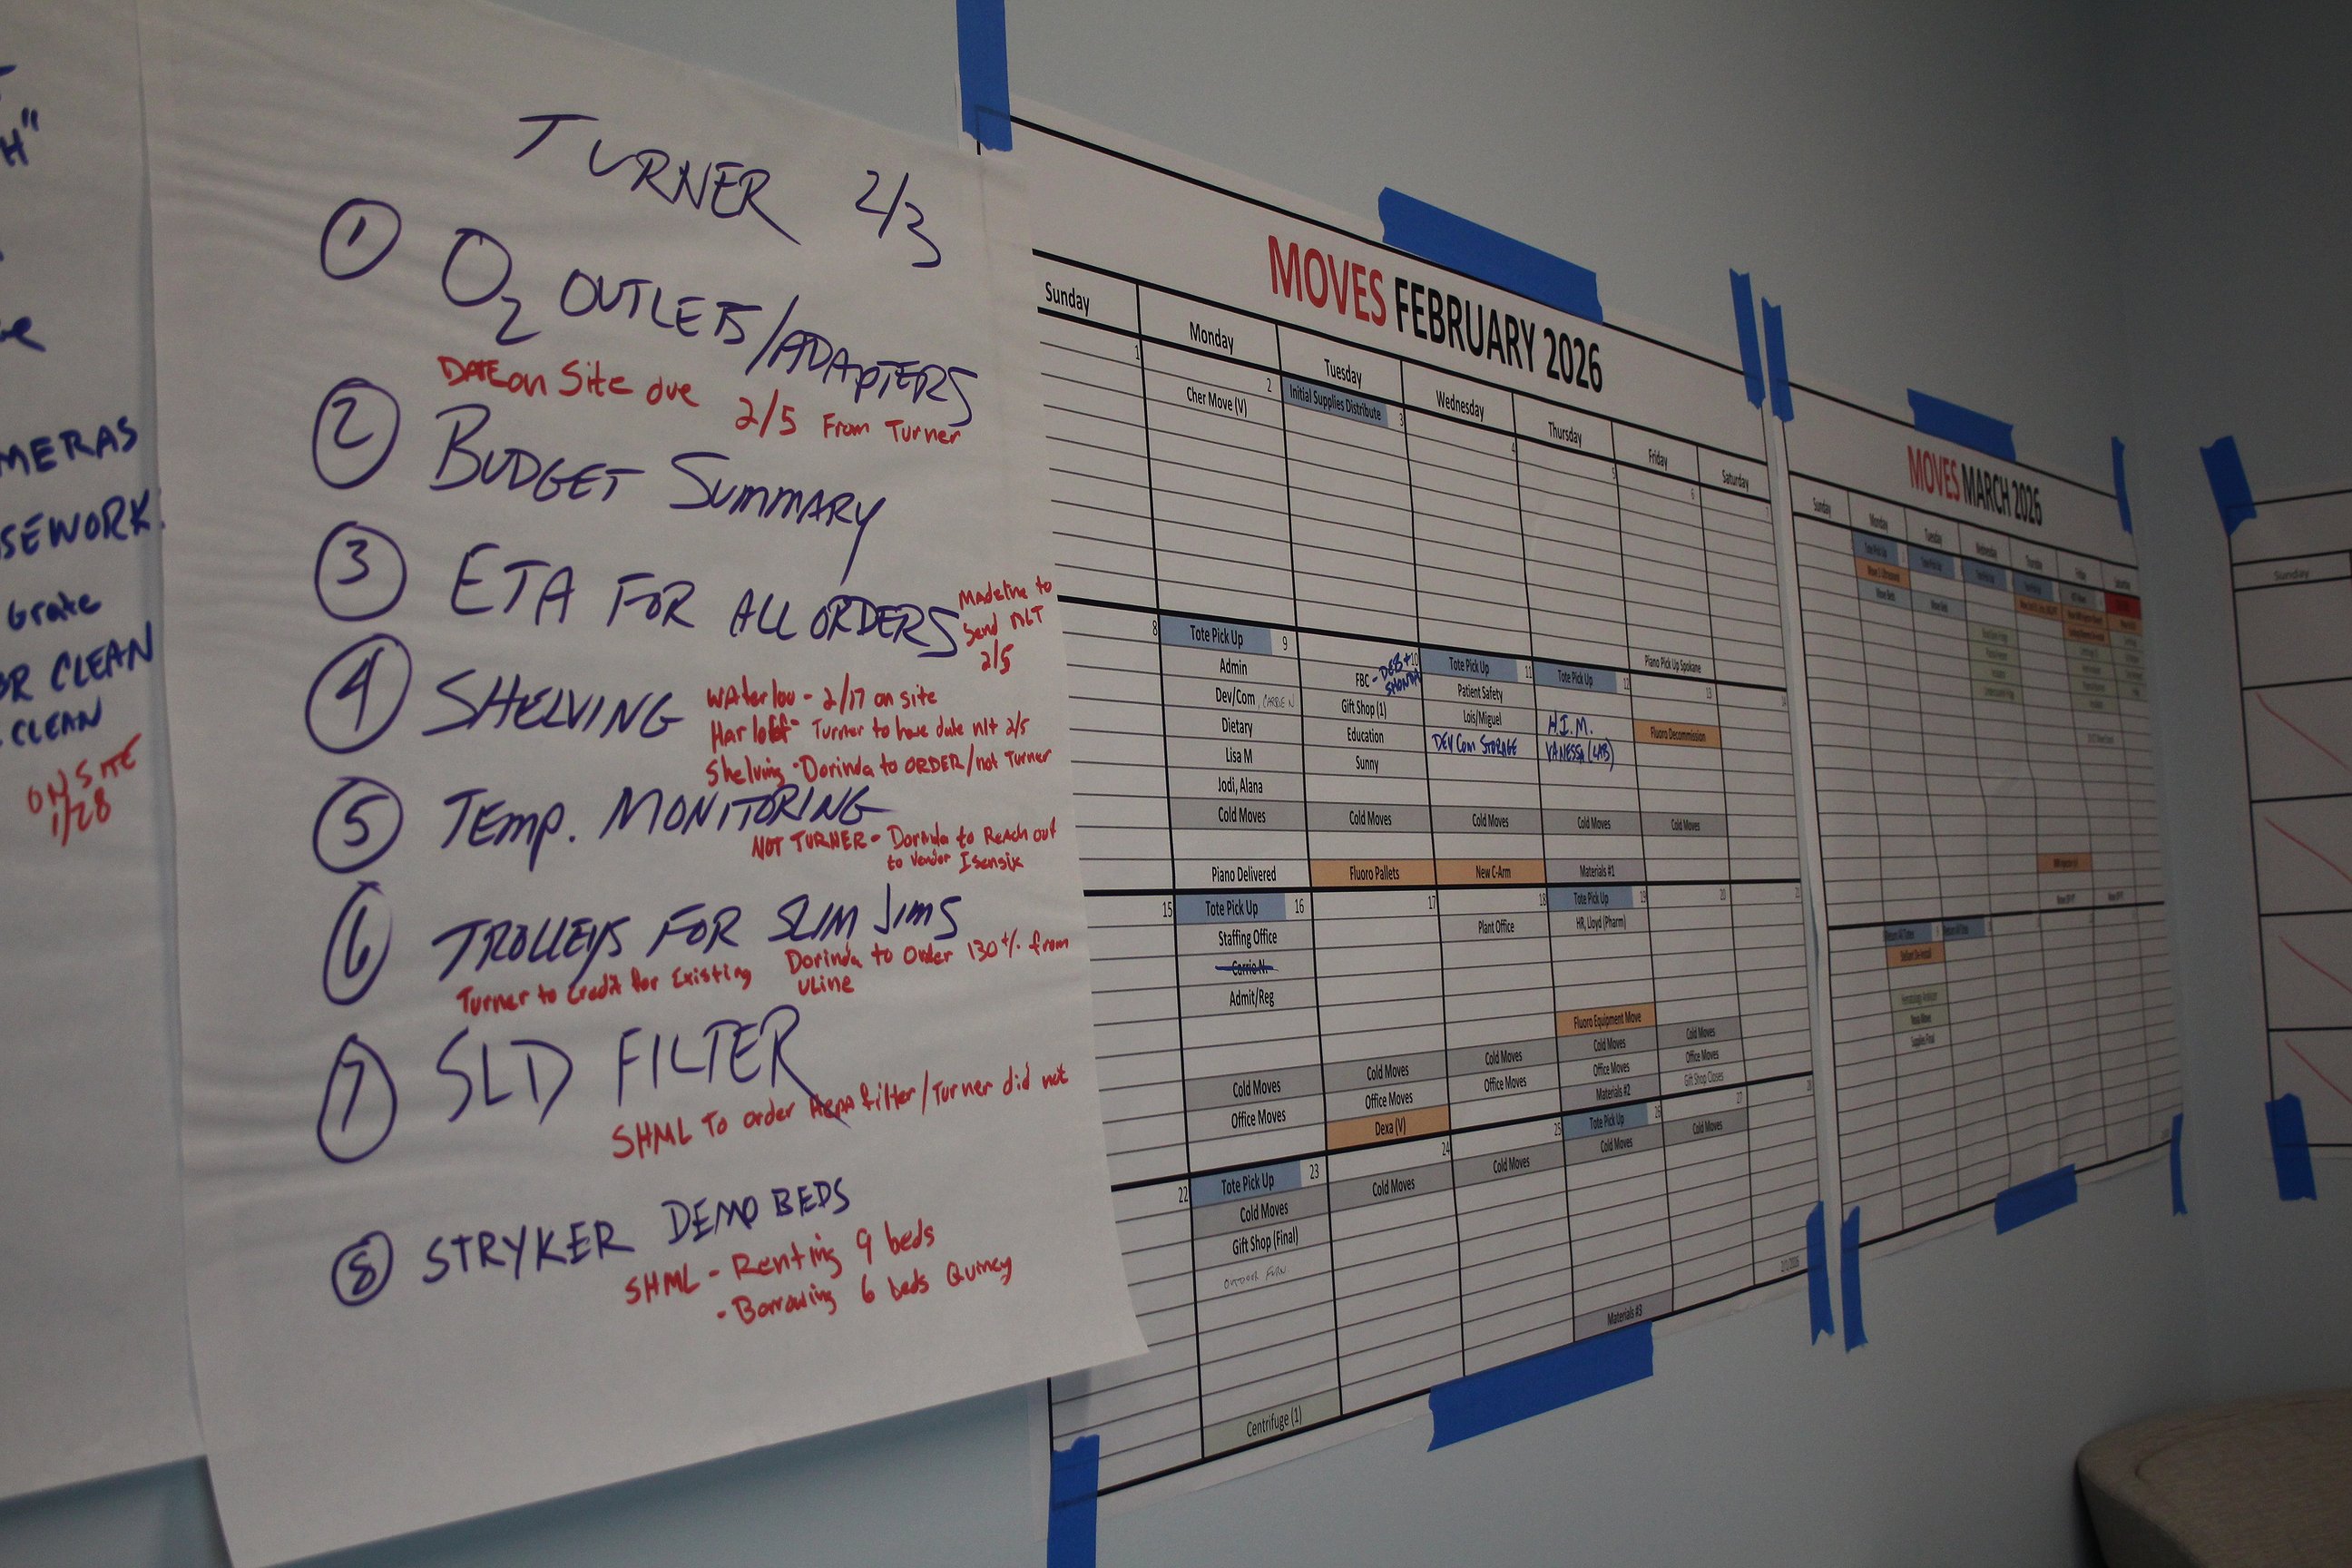 H"
MERAS
SEWORK
Grate
OR CLEAN
CLEAN
ON SITE
1/28
TURNER 2/3
1 O2 OUTLETS/ADAPTERS
DATE on Site due 2/5 From Turner
2 BUDGET SUMMARY
3 ETA FOR ALL ORDERS
Madeline to
Send NLT
2/5
4 SHELVING
Waterloo - 2/17 on site
Harloff - Turner to have date nlt 2/5
Shelving - Dorinda to ORDER/not Turner
5 TEMP. MONITORING
NOT TURNER - Dorinda to Reach out
to vendor Isensix
6 TROLLEYS FOR SLIM JIMS
Turner to Credit for Existing
Dorinda to Order 130 +/- from
ULine
7 SLD FILTER
SHML To order Hepa filter/Turner did not
8 STRYKER DEMO BEDS
SHML - Renting 9 beds
- Borrowing 6 beds Quincy
MOVES FEBRUARY 2026
Sunday Monday Tuesday Wednesday Thursday Friday Saturday
1 2 3 4 5 6 7
Cher Move (V)
Initial Supplies Distribute
Piano Pick Up Spokane
8 9 10 11 12 13 14
Tote Pick Up
Admin
Dev/Com, CARRIE N
Dietary
Lisa M
Jodi, Alana
Cold Moves
Piano Delivered
FBC - DEB +
SHONDA
Gift Shop (1)
Education
Sunny
Cold Moves
Fluoro Pallets
Tote Pick Up
Patient Safety
Lois/Miguel
DEV Com STORAGE
Cold Moves
New C-Arm
Tote Pick Up
H.I.M.
VANESSA (LAB)
Cold Moves
Materials #1
Fluoro Decommission
Cold Moves
15 16 17 18 19 20 21
Tote Pick Up
Staffing Office
Carrie N.
Admit/Reg
Cold Moves
Office Moves
Cold Moves
Office Moves
Dexa (V)
Plant Office
Cold Moves
Office Moves
Tote Pick Up
HR, Lloyd (Pharm)
Fluoro Equipment Move
Cold Moves
Office Moves
Materials #2
Cold Moves
Office Moves
Gift Shop Closes
22 23 24 25 26 27 28
Tote Pick Up
Cold Moves
Gift Shop (Final)
OUTDOOR FURN
Centrifuge (1)
Cold Moves
Cold Moves
Tote Pick Up
Cold Moves
Materials #3
Cold Moves
MOVES MARCH 2026
Sunday Monday Tuesday Wednesday Thursday Friday Saturday
Tote Pick Up
Hematology Analyzer
Supplies Final
Sunday